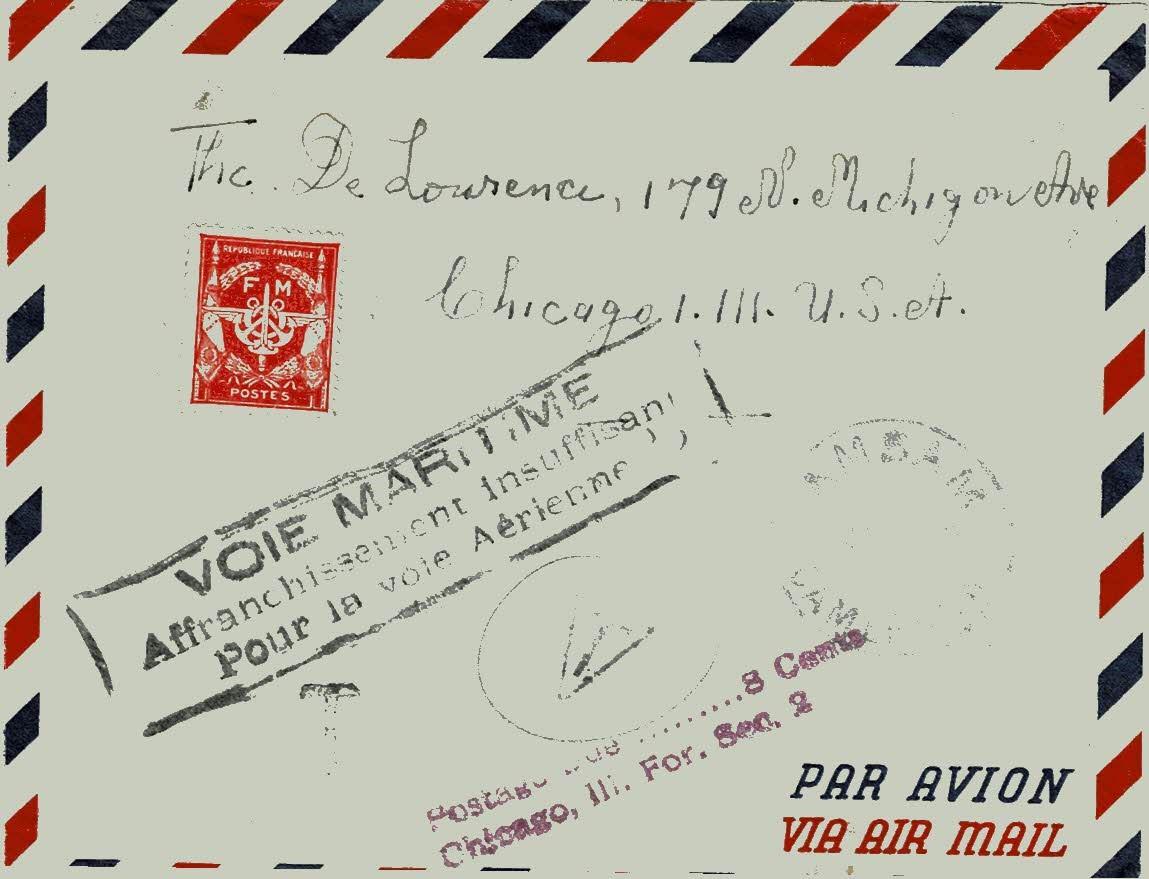 The. De Lourence, 179 N. Michigan Ave
Chicago 1. Ill. U.S.A.
REPUBLIQUE FRANÇAISE
F M
POSTES
VOIE MARITIME
Affranchissement insuffisant
Pour la voie Aérienne
T
8 Cents
Chicago, Ill. For. Sec. 2
PAR AVION
VIA AIR MAIL